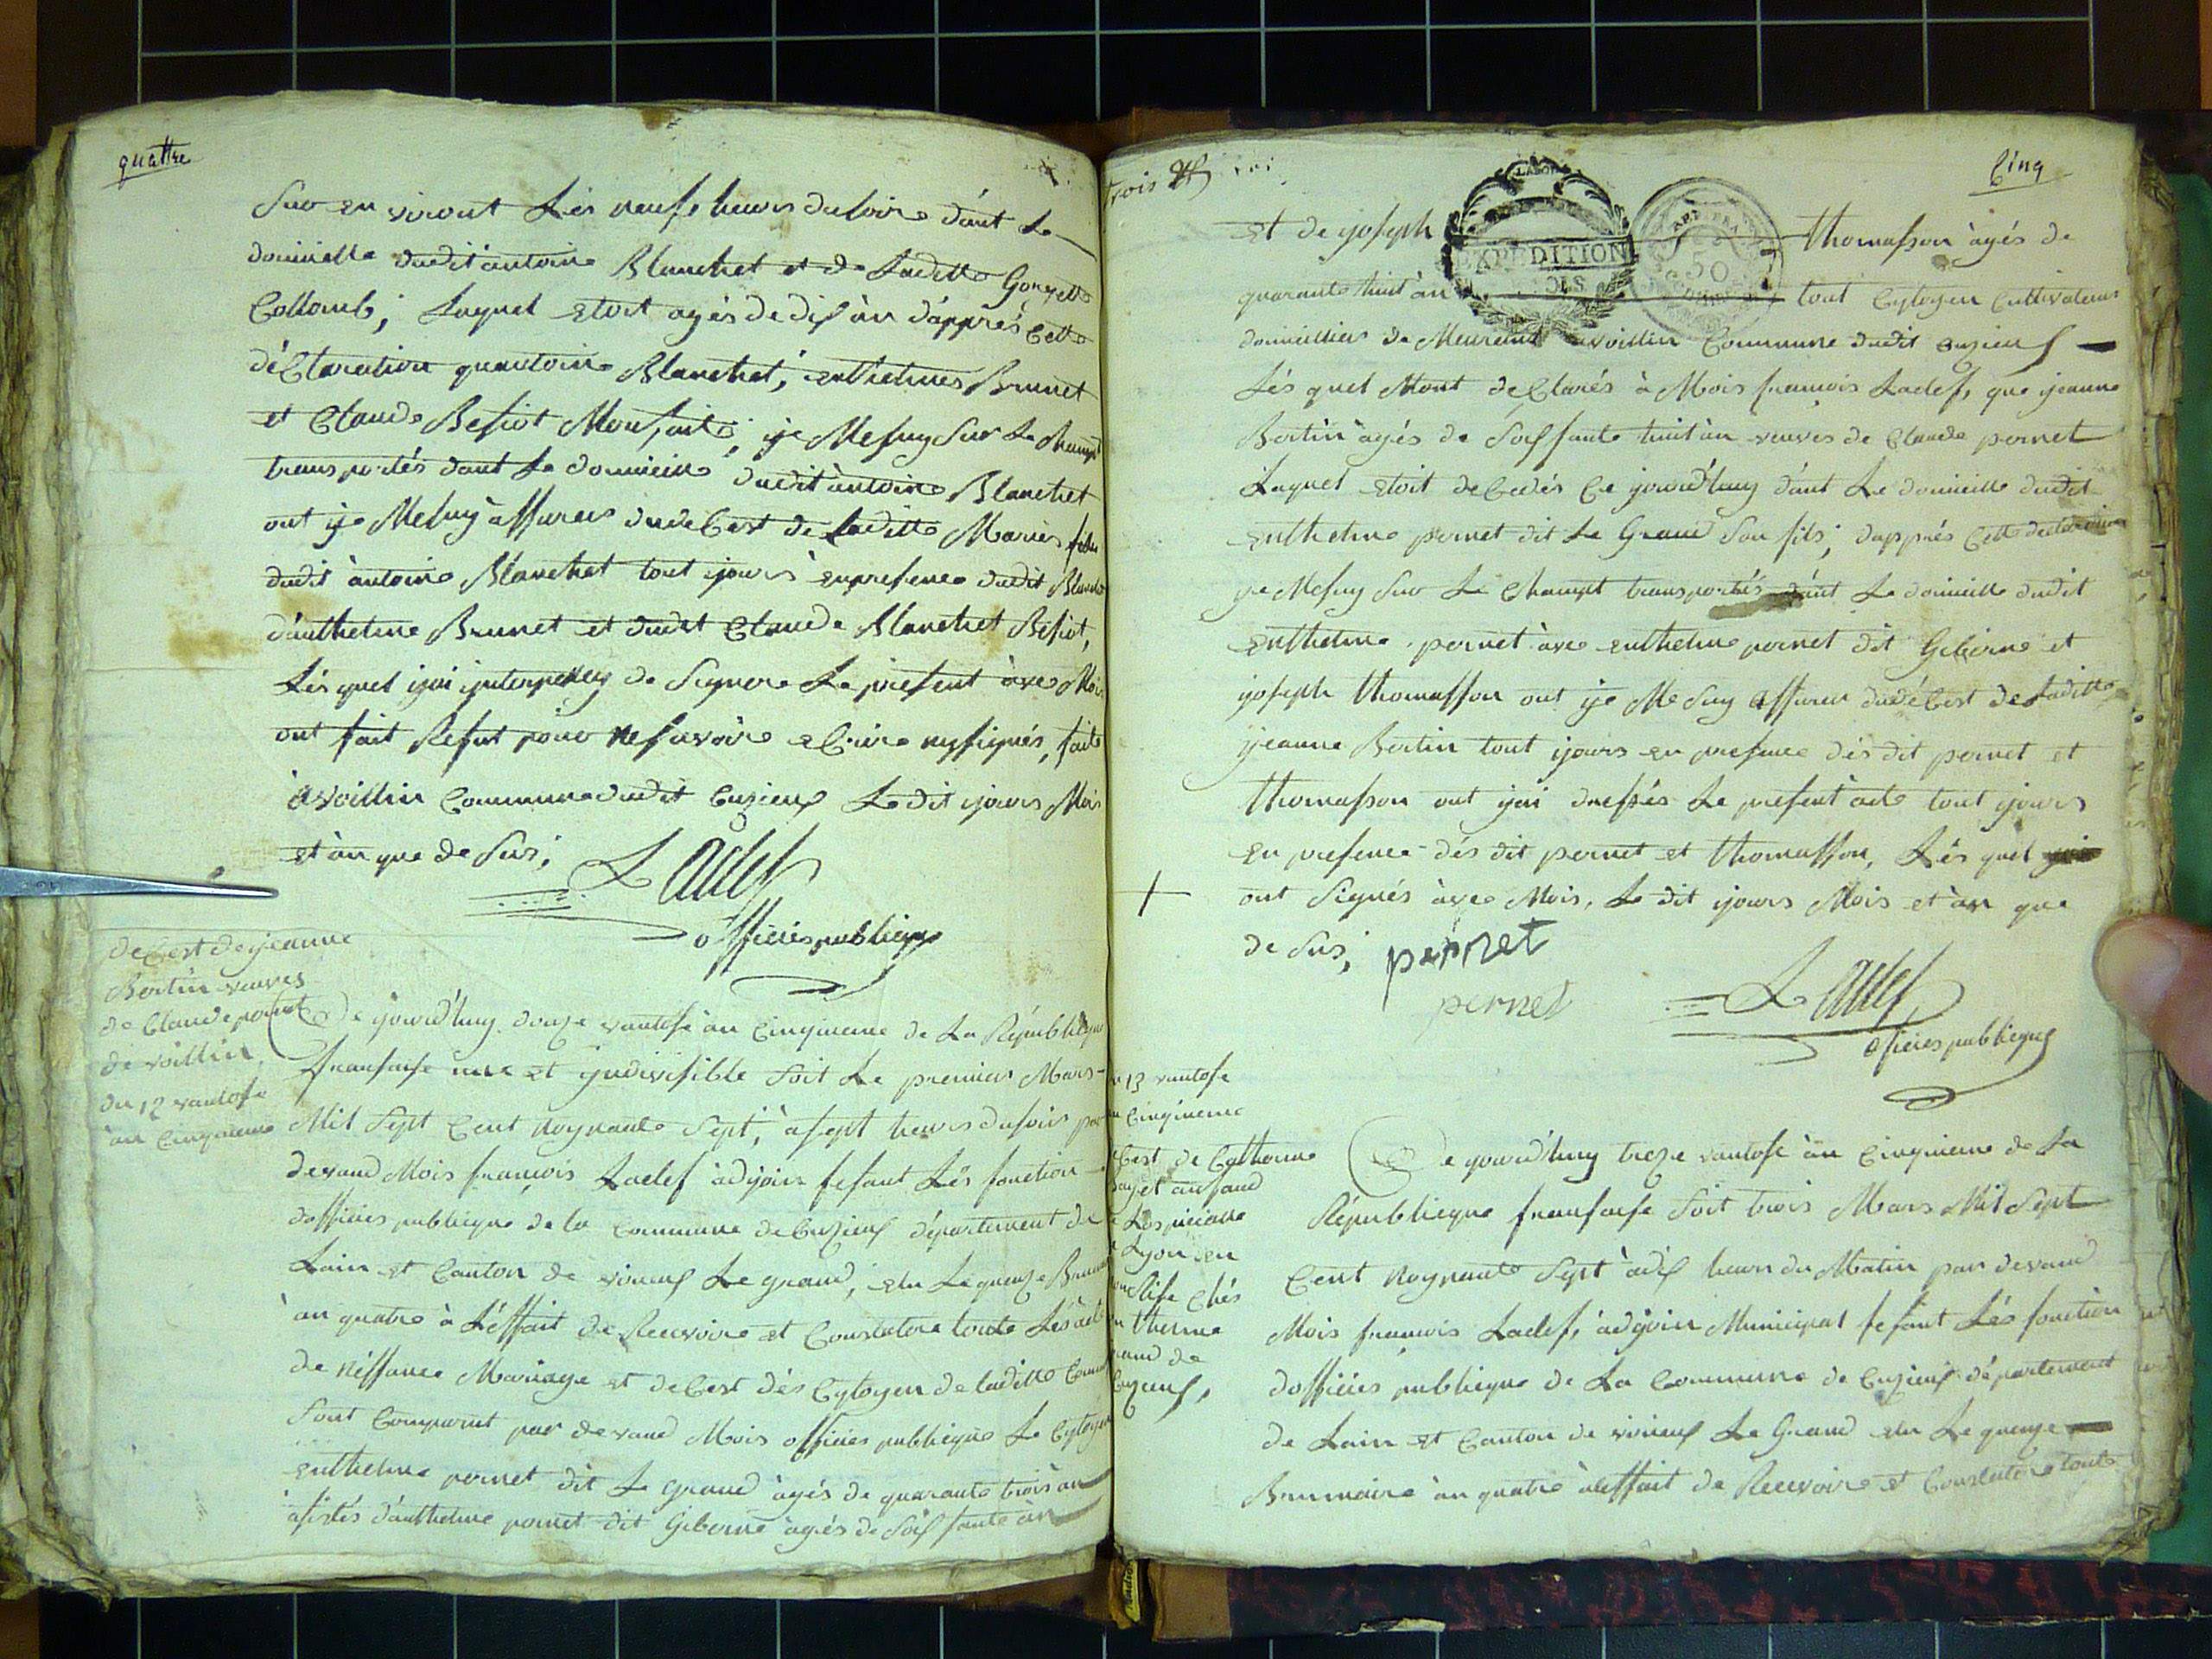 quattre
Suo en viront Lés neufs heures du soire dant Le
domicille dudit antoine Blanchet et de Laditte Gonyette
Collomb, Laquel Etoit agés de dix àn dápprés Cette
déClaration quantoine Blanchet, enthelmes Brunet
et Claude Besiot Mont faite, ije Mesuy Sur Le Champt
transportés dant Le domicille dudit antoine Blanchet
ont ije Mesuy àssurer dudéCest de Laditte Maries fille
dudit àntoine Blanchet tout ijours en presence dudit
dánthelme Brunet et dudit Claude Blanchet Besiot,
Lés quel ijai ynterpelley de Signere Le present àvec Mois
ont fait Refut pour Nesavoire eCrire nysignés, faite
àvoillin Commune dudit Cuzieux Le dit ijours Mois
et àn que de Sus,
Ladef
officiés publique
deCest de ijeanne
Bertin veuves
de Claude pernet
de voillin,
du 12 vantose
àn Cinquieme
Ce de ijourdhuy douze vantose àn Cinquieme de La Républieque
fransaise une et yndivisible Soit Le premier Mars
Mil Sept Cent Noynante Sept, à sept heures du soir par
devand Mois francois Ladef àdijoin fesant Lés fonction
dofficiés publieque de la Commune de Cuzieux département de
Lain et Canton de virieux Le grand, elu Lequenze
àn quatre à Léffait de Recevoire et Constatere toute Lés acte
de Néssance Mariage et deCest dés Cytoyen de laditte
Sont Comparut par devand Mois officiés publieque Le Cytoyen
enthelme pernet dit Le grand àgés de quarante trois àn
àsistés dánthelme pernet dit Giberne àgiés de Soissante àn
trois
Cinq
LA LOI
EXPEDITION
50
Et de ijoseph thomasson àgés de
quarante huit àn tout Cytoyen Cultivateur
domicillier de Meurend àvoillin Commune dudit Cuzieux
Lés quel Mont deClarés à Mois francois Ladef, que ijeanne
Bertin àgés de Soissante huit àn veuves de Claude pernet
Laquel etoit deCedés Ce ijourdhuy dánt Le domicille dudit
enthelme pernet dit Le Grand Son fils, dapprés Cette declaration
ije Mesuy Suo Le Champt transportés dánt Le domicille dudit
enthelme pernet àvec enthelme pernet dit Giberne et
ijoseph thomasson ont ije Me Suy assurer dudéCest de Laditte
ijeanne Bertin tout ijours en presence dés dit pernet et
thomasson ont ijai dressés Le present acte tout ijours
en presence dés dit pernet et thomasson, Lés quel
ont Signés àvec Mois, Le dit ijours Mois et àn que
de Sus,
pernet
pernet
Ladef
officiés publieque
13 vantose
Cinquieme
de Catherine
Lyon
chés
therme
de
Cuzieux,
Ce de ijourdhuy treze vantose àn Cinquieme de La
Républieque fransaise Soit trois Mars Mil Sept
Cent Noynante Sept àdix heur du Matin par devand
Mois francois Ladef, àdijoin Municipal fesant Lés fonction
dofficiés publieque de La Commune de Cuzieux département
de Lain et Canton de virieux Le Grand elu Le quenze
Brumaire àn quatre àléffait de Recevoire et Constatere toute